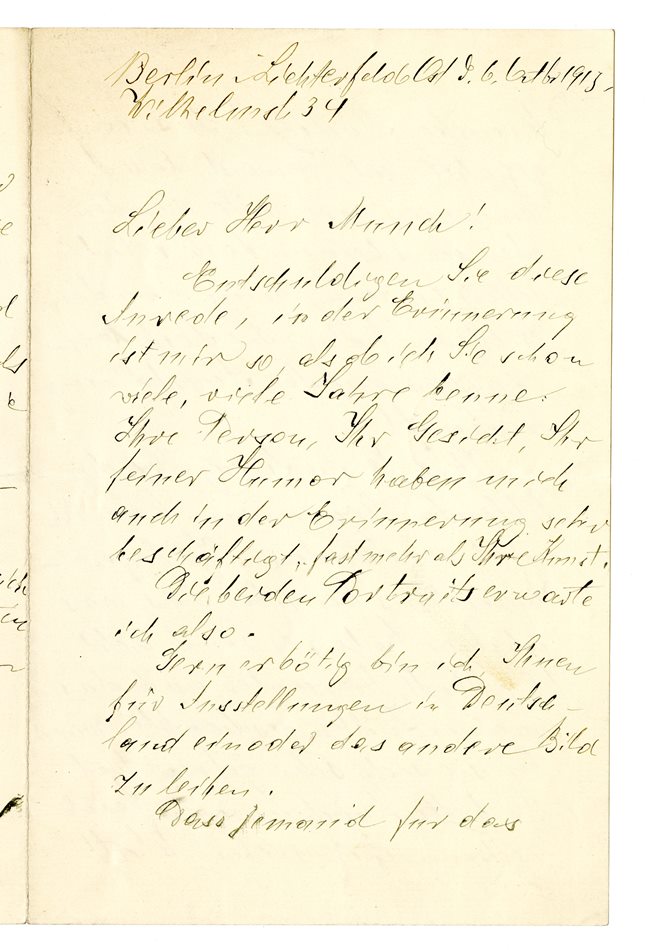 Berlin-Lichterfelde Ost d. 6. Octbr 1913.
Wilhelmst 34
Lieber Herr Munch!
Entschuldigen Sie diese
Anrede, in der Erinnerung
ist mir so, als ob ich Sie schon
viele, viele Jahre kenne.
Ihre Person, Ihr Gesicht, Ihr
feiner Humor haben mich
auch in der Erinnerung sehr
beschäftigt, fast mehr als Ihre Kunst.
Die beiden Portraits erwarte
ich also.
Gern erbötig bin ich, Ihnen
für Ausstellungen in Deutsch-
land ein oder das andere Bild
zu leihen.
Dass Jemand für das